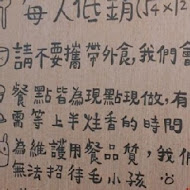 每人低銷(54x12
請不要攜帶外食,我們會
餐點皆為現點現做,有
需等上半炷香的時間
為維護用餐品質,我們
無法招待毛小孩